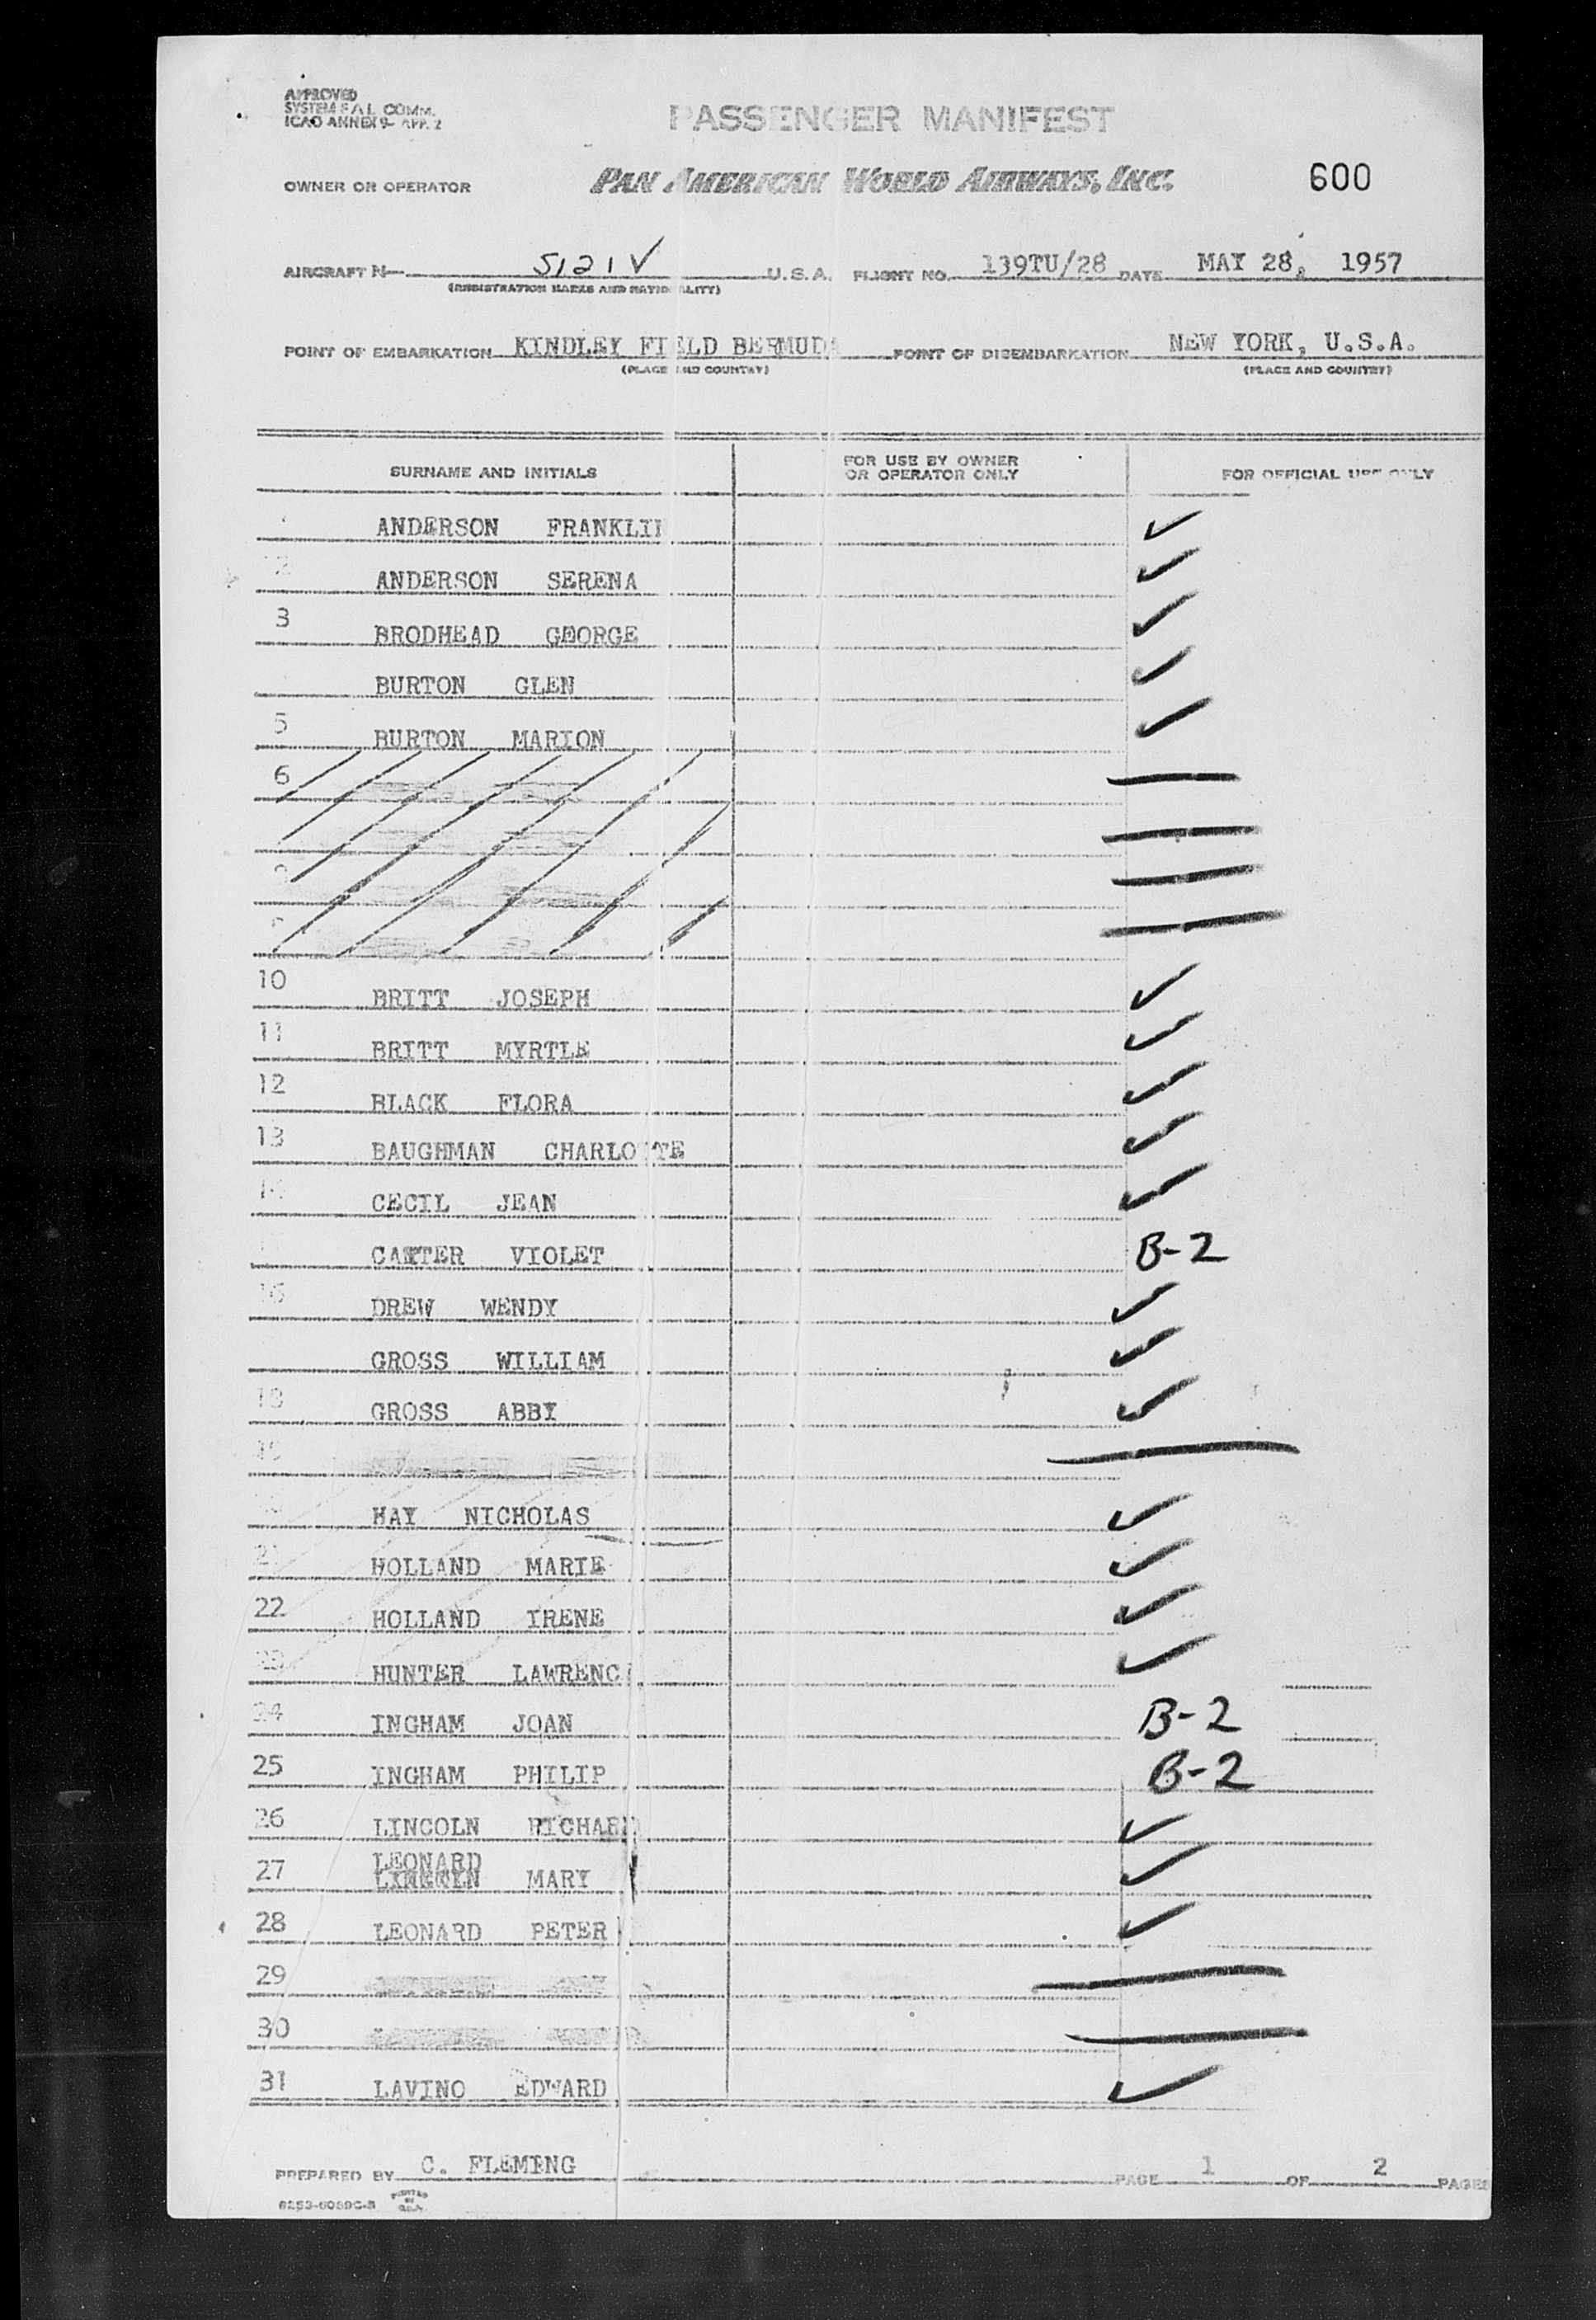 APPROVED
SYSTEM F A L COMM.
ICAO ANNEX 9- APP. 2
PASSENGER MANIFEST
OWNER OR OPERATOR PAN AMERICAN WORLD AIRWAYS, INC. 600
AIRCRAFT N— 5121V U.S.A. FLIGHT NO. 139TU/28 DATE MAY 28, 1957
(REGISTRATION MARKS AND NATIONALITY)
POINT OF EMBARKATION KINDLEY FIELD BERMUDA POINT OF DISEMBARKATION NEW YORK, U.S.A.
(PLACE AND COUNTRY) (PLACE AND COUNTRY)
SURNAME AND INITIALS FOR USE BY OWNER OR OPERATOR ONLY FOR OFFICIAL USE ONLY
ANDERSON FRANKLIN ✓
2 ANDERSON SERENA ✓
3 BRODHEAD GEORGE ✓
BURTON GLEN ✓
5 BURTON MARION ✓
6
10 BRITT JOSEPH ✓
11 BRITT MYRTLE ✓
12 BLACK FLORA ✓
13 BAUGHMAN CHARLOTTE ✓
14 CECIL JEAN ✓
VIOLET B-2
16 DREW WENDY ✓
GROSS WILLIAM ✓
18 GROSS ABBY ✓
19
HAY NICHOLAS ✓
21 HOLLAND MARIE ✓
22 HOLLAND IRENE ✓
23 HUNTER LAWRENC ✓
24 INGHAM JOAN B-2
25 INGHAM PHILIP B-2
26 LINCOLN RICHARD ✓
27 LEONARD MARY ✓
28 LEONARD PETER ✓
29
30
31 LAVINO EDWARD ✓
PREPARED BY C. FLEMING PAGE 1 OF 2 PAGES
PRINTED IN U.S.A.